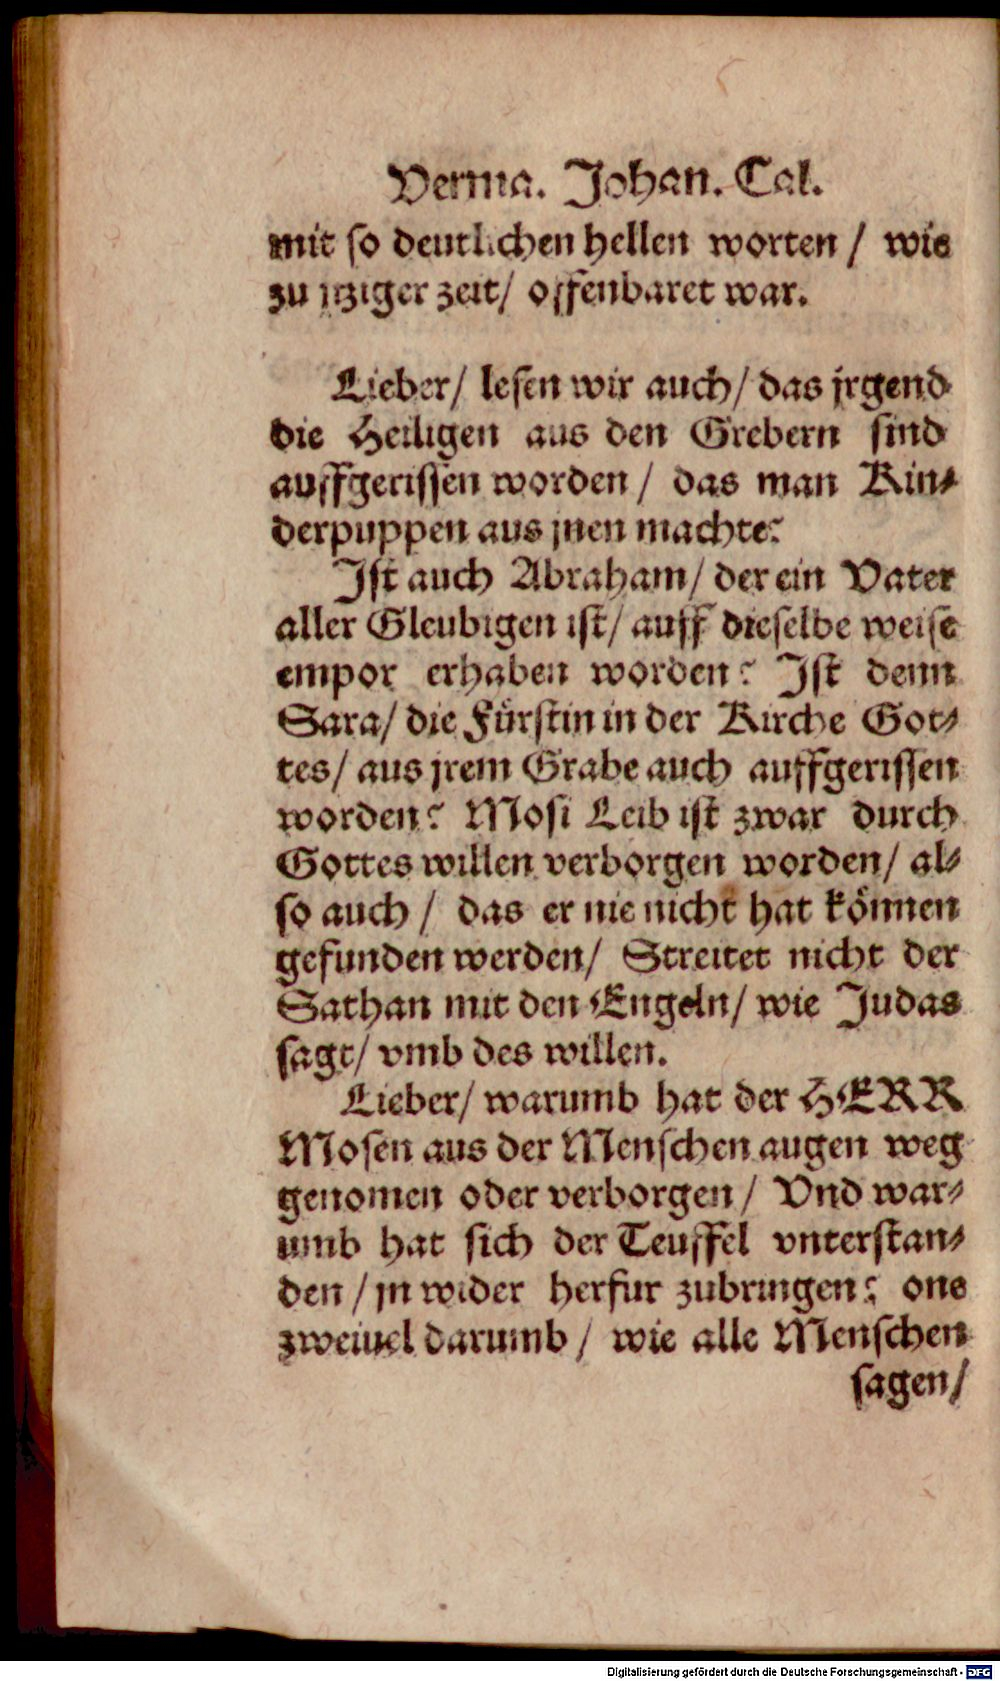 Verma. Johan. Cal.
mit so deutlichen hellen worten / wie
zu jtziger zeit/ offenbaret war.
Lieber/ lesen wir auch/ das jrgend
die Heiligen aus den Grebern sind
auffgerissen worden / das man Kin⸗
derpuppen aus jnen machte?
Ist auch Abraham/ der ein Vater
aller Gleubigen ist/ auff dieselbe weise
empor erhaben worden? Ist denn
Sara/ die Fürstin in der Kirche Got⸗
tes/ aus jrem Grabe auch auffgerissen
worden? Mosi Leib ist zwar durch
Gottes willen verborgen worden/ al⸗
so auch / das er nie nicht hat können
gefunden werden/ Streitet nicht der
Sathan mit den Engeln/ wie Judas
sagt/ vmb des willen.
Lieber/ warumb hat der HERR
Mosen aus der Menschen augen weg
genomen oder verborgen / Vnd war⸗
umb hat sich der Teuffel vnterstan⸗
den / jn wider herfur zubringen? one
zweiuel darumb / wie alle Menschen
sagen/
Digitalisierung gefördert durch die Deutsche Forschungsgemeinschaft - DFG